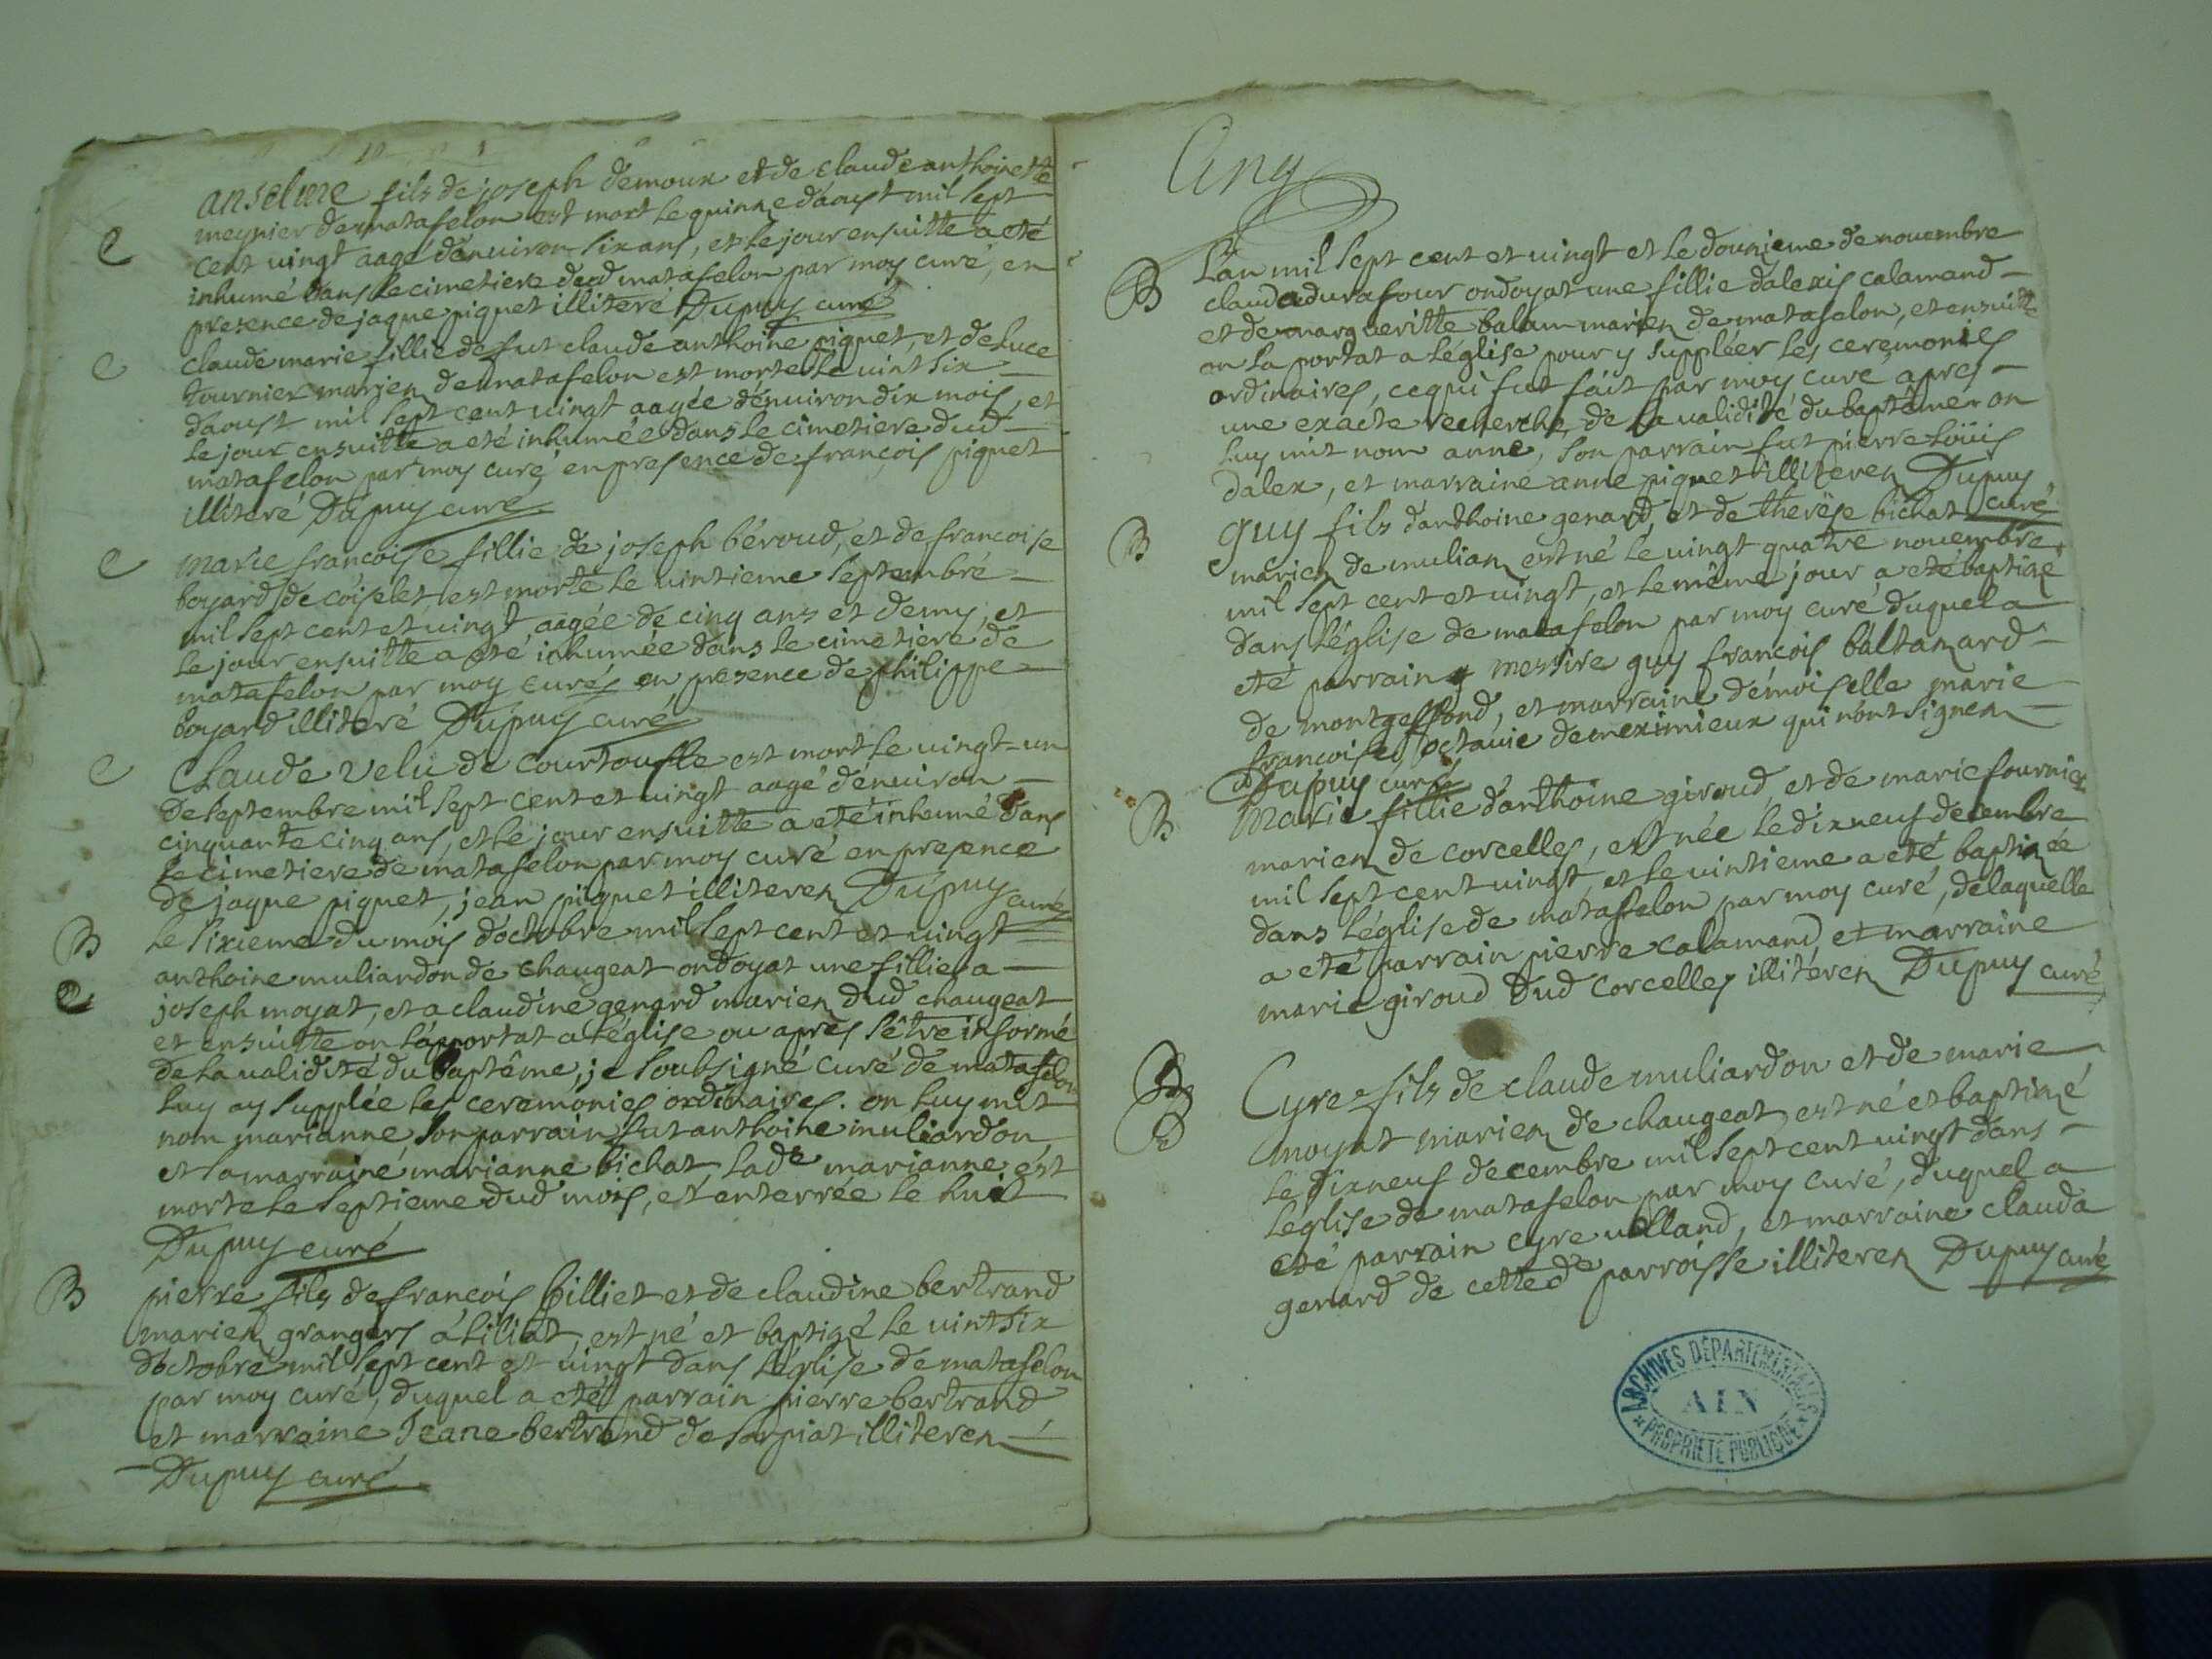 anselme fils de joseph demoux et de claude anthoinette
meynier de matafelon est mort le quinze d'aoust mil sept
e cent vingt aagé d'enuiron six ans, et le jour ensuitte a eté
inhumé dans le cimetiere dud matafelon par moy curé, en
presence de jaque piquet illiteré Dupuy curé
e claude marie fillie de fut claude anthoine piquet, et de luce
tournier mariez de matafelon est morte le vint six
d'aoust mil sept cent vingt aagée d'énuiron dix mois, et
le jour ensuitte a eté inhumée dans le cimetiere dud
matafelon par moy curé en presence de françois piquet
illiteré Dupuy curé
e marie francoise fillie de joseph béroud, et de francoise
boyard de coiselet est morte le vintieme septembre
mil sept cent et vingt aagée de cinq ans et demy, et
le jour ensuitte a eté inhumée dans le cimetiere de
matafelon par moy curé en presence de philippe
boyard illiteré Dupuy curé
e Claude velu de courtouffle est mort le vingt-un
de septembre mil sept cent et vingt aagé d'énuiron
cinquante cinq ans, et le jour ensuitte a eté inhumé dans
le cimetiere de matafelon par moy curé en presence
de jaque piquet, jean piquet illiterez Dupuy curé
B le sixieme du mois d'octobre mil sept cent et vingt
anthoine muliardon de chaugeat ondoyat une fillie a
e joseph moyat, et a claudine genard mariez dud chaugeat
et ensuitte on l'apportat a l'église ou aprés s'être informé
de la validité du baptême, je soubsigné curé de matafelon
luy ay supplée les ceremonies ordinaires. on luy mit
nom marianne, son parrain fut anthoine muliardon
et la marraine marianne bichat lade marianne ést
morte le septieme dud mois, et enterrée le huit
Dupuy curé
B pierre fils de françois billiet et de claudine bertrand
mariez grangers á siliat est né et baptizé le vint six
d'octobre mil sept cent et vingt dans l'église de matafelon
par moy curé, duquel a eté parrain pierre bertrand
et marraine Jeane bertrand de sarpiat illiterez
Dupuy curé
Cinq
L'an mil sept cent et vingt et le douzieme de nouembre
B clauda durafour ondoyat une fillie d'alexis calamand
et de margueritte balam mariez de matafelon, et ensuitte
on la portat a l'église pour y suppléer les ceremonies
ordinaires, ce qui fut fait par moy curé apres
une exacte recherche de la validité du baptême on
luy mit nom anne, son parrain fut pierre loüis
dalex, et marraine anne piquet illiterez Dupuy
curé
B guy fils d'anthoine genard, et de therése bichat
mariez de mulian est né le vingt quatre nouembre
mil sept cent et vingt, et le même jour a eté baptizé
dans l'église de matafelon par moy curé duquel a
eté parrain messire guy françois baltazard
de montgeffond, et marraine démoiselle marie
francoise octauie de meximieux qui n'ont signez
Dupuy curé
B Marie fillie d'anthoine giroud, et de marie fournier
mariez de corcelles, est née le dixneuf decembre
mil sept cent vingt, et le vintieme a eté baptizée
dans l'église de matafelon par moy curé, de laquelle
a eté parrain pierre calamand, et marraine
marie giroud dud corcelles illitérez Dupuy curé
B Cyre fils de claude muliardon et de marie
moyat mariez de chaugeat, est né et baptizé
le dixneuf decembre mil sept cent vingt dans
l'église de matafelon par moy curé, duquel a
eté parrain cyre volland, et marraine clauda
genard de cette de parroisse illiterez Dupuy curé
ARCHIVES DÉPARTEMENTALES
AIN
PROPRIÉTÉ PUBLIQUE